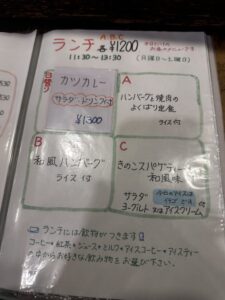 A.B.C
ランチ 各¥1200
11:30〜13:30
(月曜日〜土曜日)
日替り
カツカレー
サラダ・ドリンク付
¥1300
A
ハンバーグと焼肉の
よくばり定食
ライス付
B
和風ハンバーグ
ライス付
C
きのこスパゲティー
和風味
サラダ
ヨーグルト又はアイスクリーム
ランチには飲物がつきます
コーヒー・紅茶・ジュース・ミルク・アイスコーヒー・アイスティー
の中からお好きな飲み物をお選び下さい。